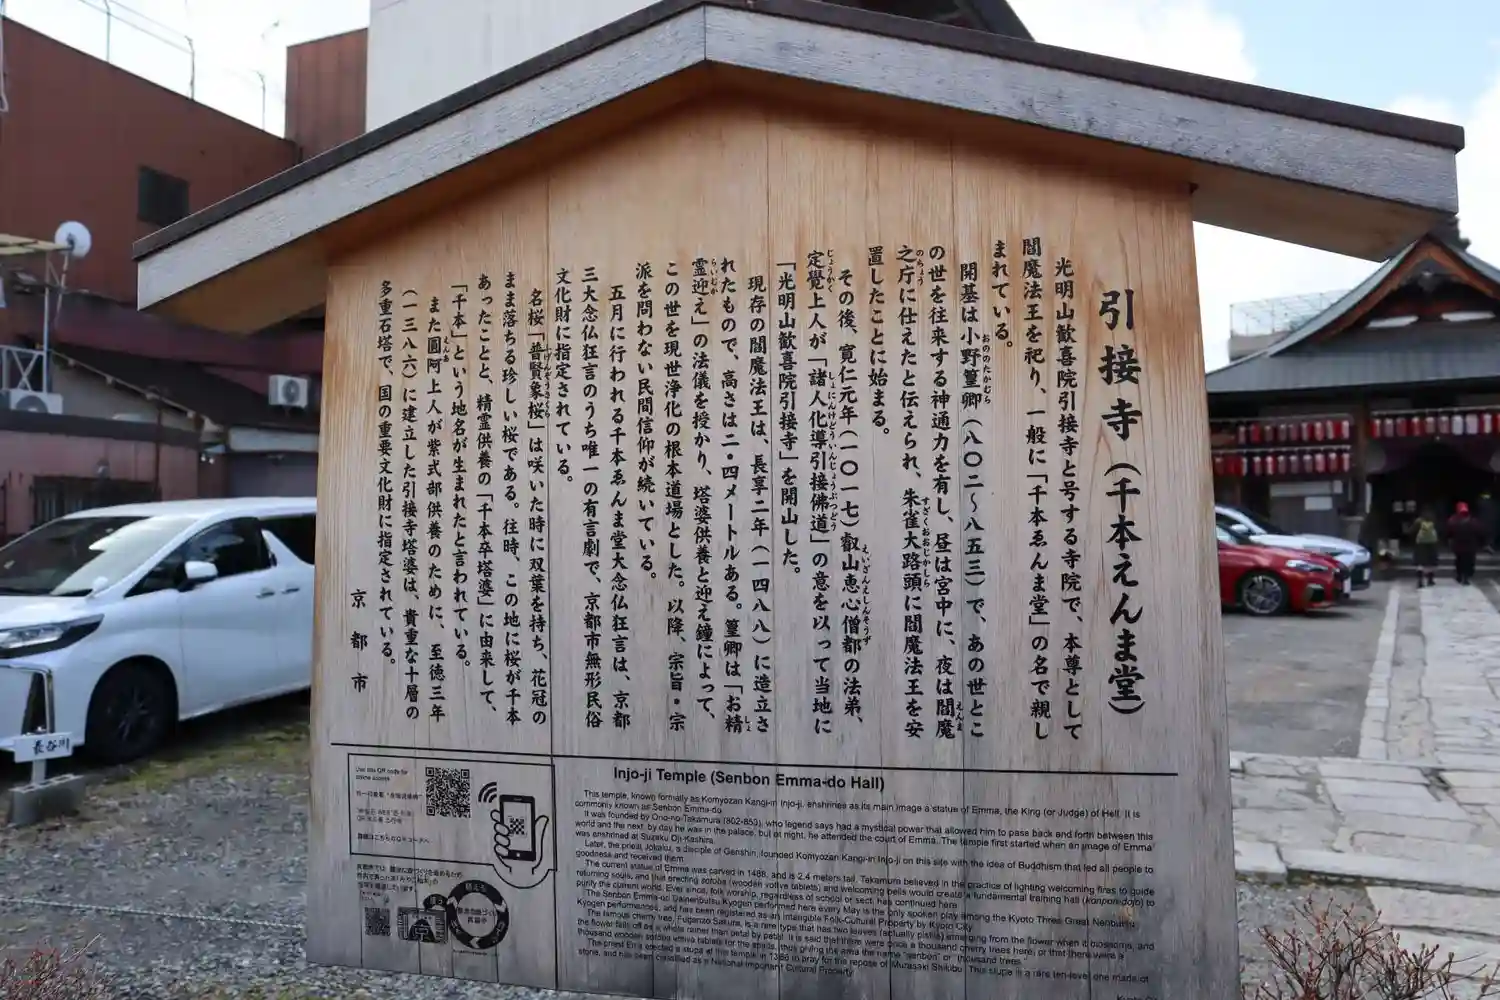 引接寺（千本えんま堂）
光明山歓喜院引接寺と号する寺院で、本尊として
閻魔法王を祀り、一般に「千本ゑんま堂」の名で親し
まれている。
開基は小野篁卿（八〇二〜八五三）で、あの世とこ
の世を往来する神通力を有し、昼は宮中に、夜は閻魔
之庁に仕えたと伝えられ、朱雀大路頭に閻魔法王を安
置したことに始まる。
その後、寛仁元年（一〇一七）叡山恵心僧都の法弟、
定覺上人が「諸人化導引接佛道」の意を以って当地に
「光明山歓喜院引接寺」を開山した。
現存の閻魔法王は、長享二年（一四八八）に造立さ
れたもので、高さは二・四メートルある。篁卿は「お精
霊迎え」の法儀を授かり、塔婆供養と迎え鐘によって、
この世を現世浄化の根本道場とした。以降、宗旨・宗
派を問わない民間信仰が続いている。
五月に行われる千本ゑんま堂大念仏狂言は、京都
三大念仏狂言のうち唯一の有言劇で、京都市無形民俗
文化財に指定されている。
名桜「普賢象桜」は咲いた時に双葉を持ち、花冠の
まま落ちる珍しい桜である。往時、この地に桜が千本
あったことと、精霊供養の「千本卒塔婆」に由来して、
「千本」という地名が生まれたと言われている。
また圓阿上人が紫式部供養のために、至徳三年
（一三八六）に建立した引接寺塔婆は、貴重な十層の
多重石塔で、国の重要文化財に指定されている。
京都市
Use this QR code for
online access
Injo-ji Temple (Senbon Emma-do Hall)
This temple, known formally as Komyozan Kangi-in Injo-ji, enshrines as its main image a statue of Emma, the King (or Judge) of Hell. It is
commonly known as Senbon Emma-do.
It was founded by Ono-no-Takamura (802-853), who legend says had a mystical power that allowed him to pass back and forth between this
world and the next; by day he was in the palace, but at night, he attended the court of Emma. The temple first started when an image of Emma
was enshrined at Suzaku Oji-Kashira.
Later, the priest Jokaku, a disciple of Genshin, founded Komyozan Kangi-in Injo-ji on this site with the idea of Buddhism that led all people to
goodness and received them.
The current statue of Emma was carved in 1488, and is 2.4 meters tall. Takamura believed in the practice of lighting welcoming fires to guide
returning souls, and that erecting sotoba (wooden votive tablets) and welcoming bells would create a fundamental training hall (konpon-dojo) to
purify the current world. Ever since, folk worship, regardless of school or sect, has continued here.
The Senbon Emma-do Dainenbutsu Kyogen performed here every May is the only spoken play among the Kyoto Three Great Nenbutsu
Kyogen performances, and has been registered as an Intangible Folk-Cultural Property by Kyoto City.
The famous cherry tree, Fugenzo Sakura, is a rare type that has two leaves (actually pistils) emerging from the flower when it blossoms, and
the flower falls off as a whole rather than petal by petal. It is said that there were once a thousand cherry trees here, or that there were a
thousand wooden sotoba votive tablets for the spirits, thus giving the area the name "senbon" or "thousand trees."
The priest En'a erected a stupa at this temple in 1386 to pray for the repose of Murasaki Shikibu. This stupa is a rare ten-level one made of
stone, and has been classified as a National Important Cultural Property.
長谷川